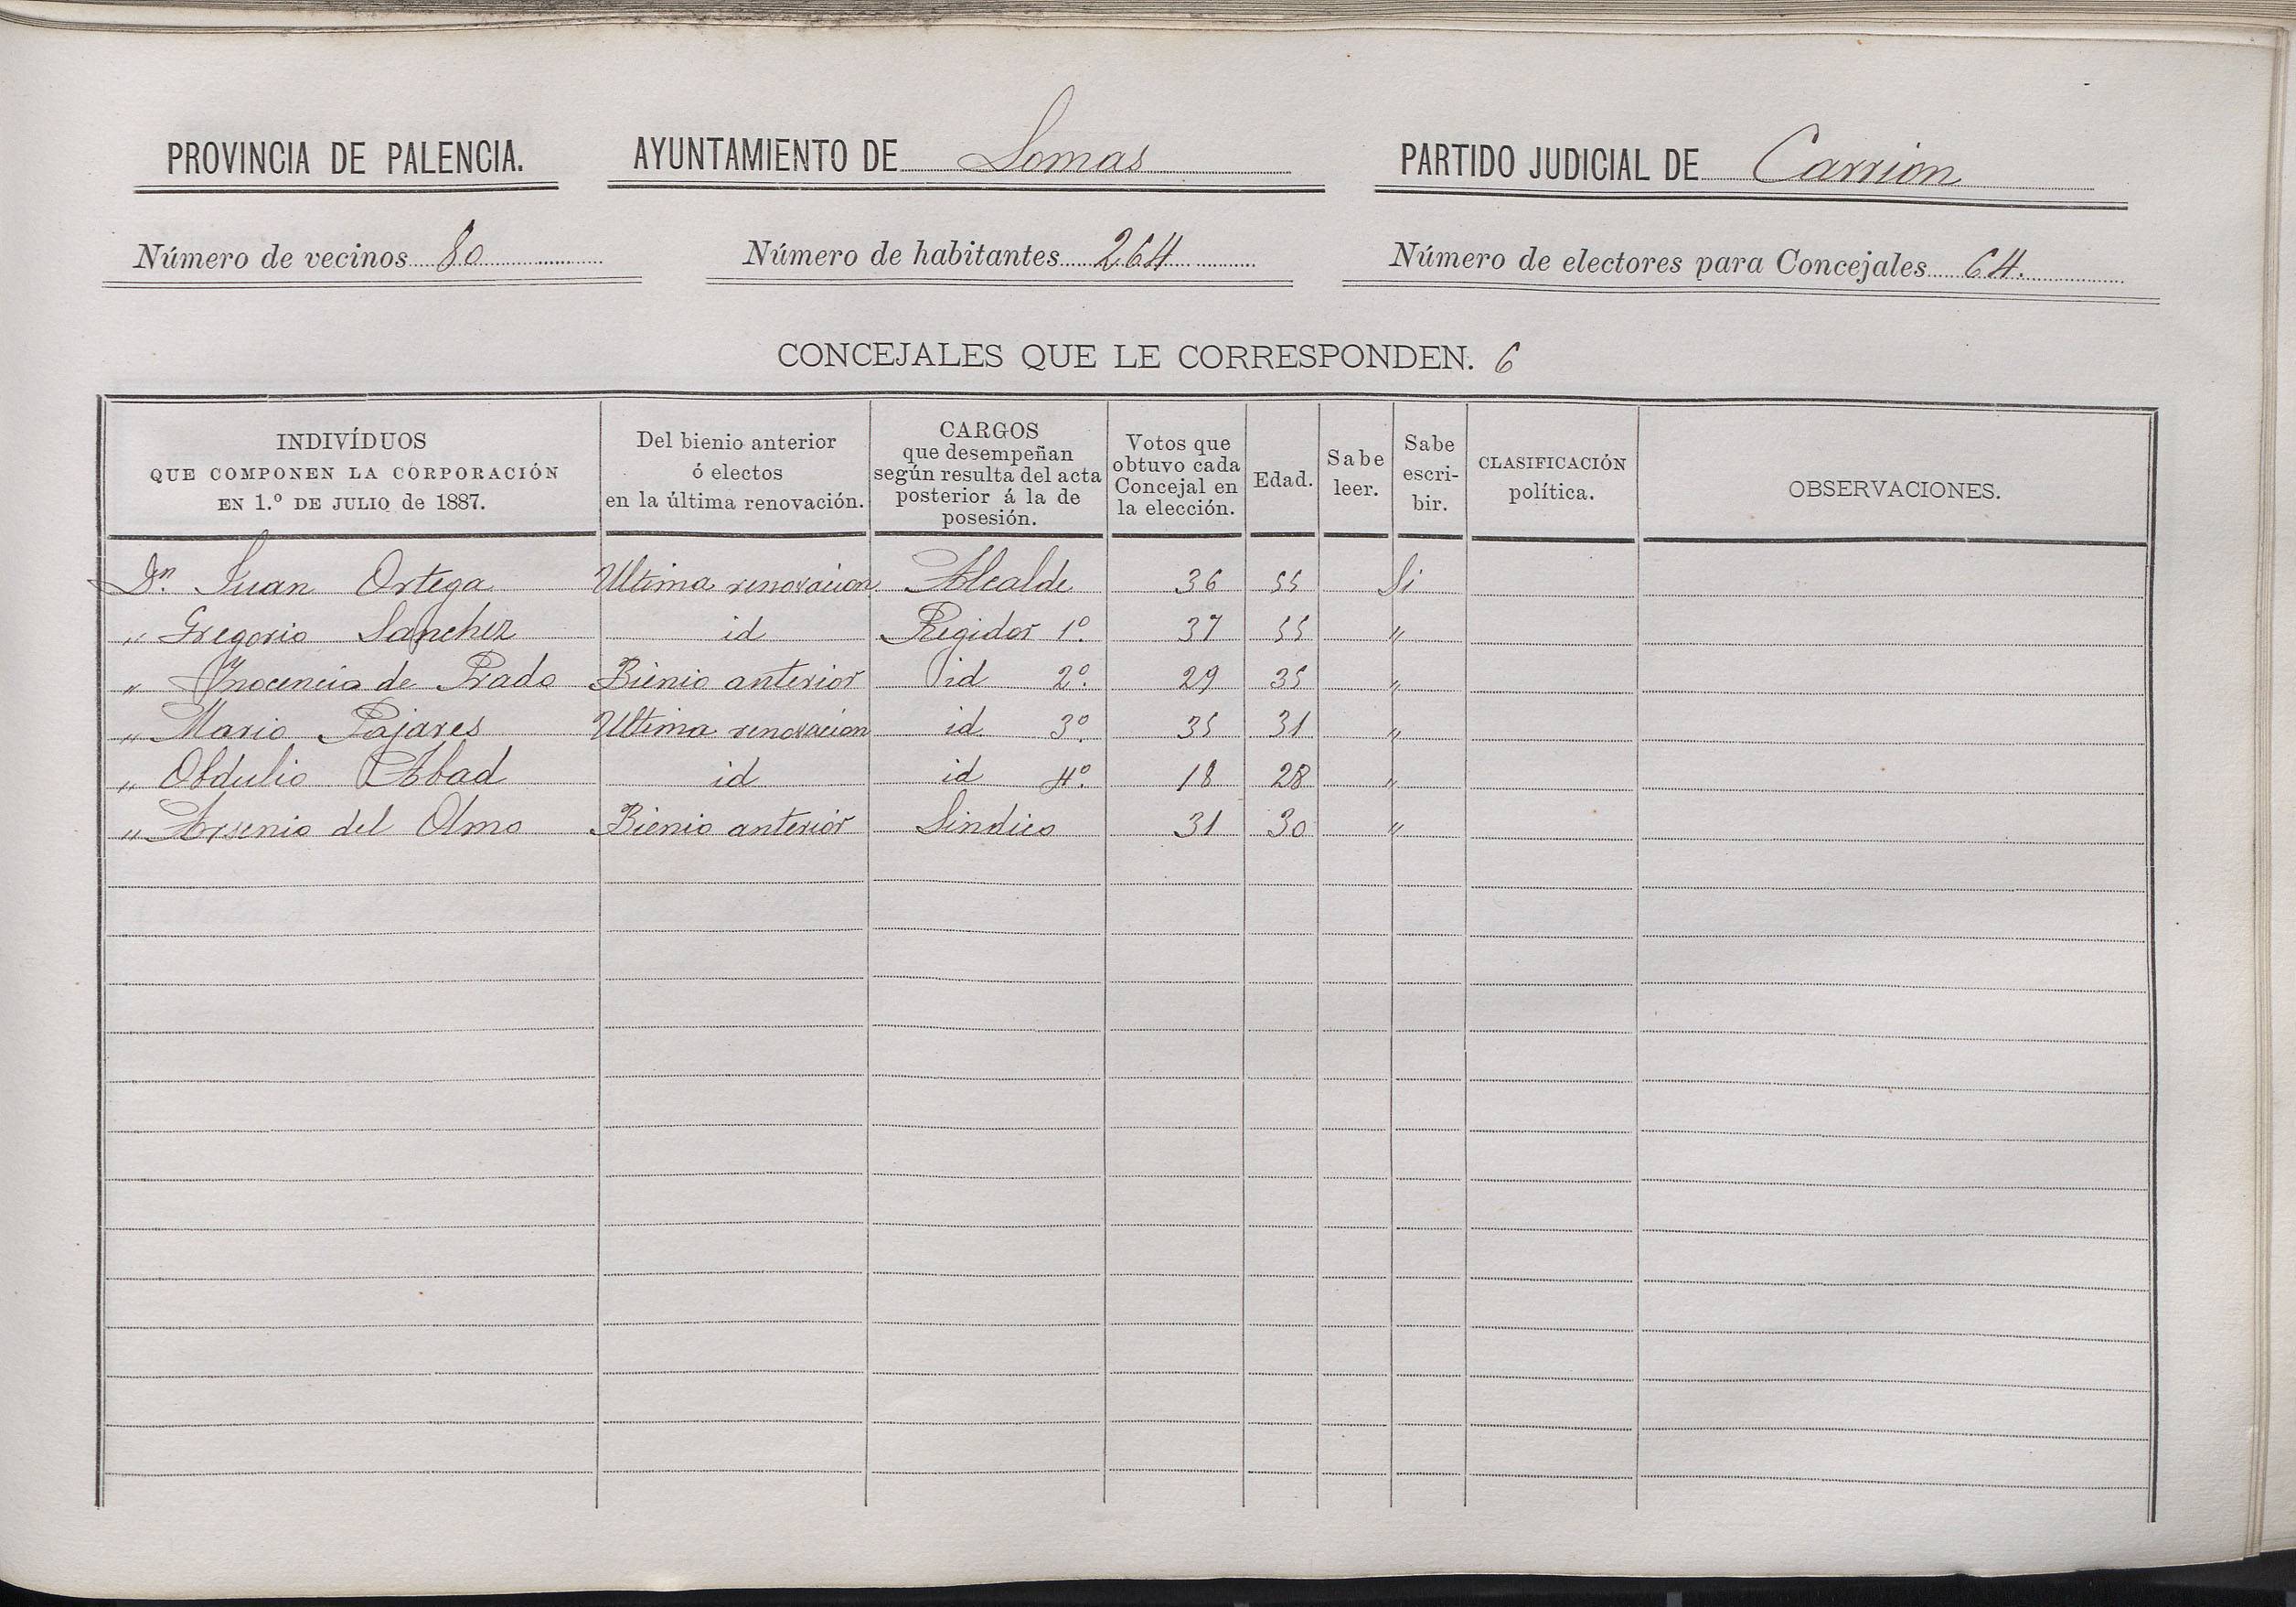 PROVINCIA DE PALENCIA. AYUNTAMIENTO DE Lomas PARTIDO JUDICIAL DE Carrion
Número de vecinos 80 Número de habitantes 264 Número de electores para Concejales 64.
CONCEJALES QUE LE CORRESPONDEN. 6
INDIVÍDUOS
QUE COMPONEN LA CORPORACIÓN
EN 1.º DE JULIO de 1887.
Del bienio anterior
ó electos
en la última renovación.
CARGOS
que desempeñan
según resulta del acta
posterior á la de
posesión.
Votos que
obtuvo cada
Concejal en
la elección.
Edad.
Sabe
leer.
Sabe
escri-
bir.
CLASIFICACIÓN
política.
OBSERVACIONES.
Dn. Juan Ortega Ultima renovacion Alcalde 36 55 Si
" Gregorio Sanchez id Regidor 1º. 37 55 "
" Ynocencio de Prado Bienio anterior id 2º. 29 35 "
" Mario Pajares Ultima renovacion id 3º. 35 31 "
" Obdulio Abad id id 4º. 18 28 "
" Arsenio del Olmo Bienio anterior Sindico 31 30 "